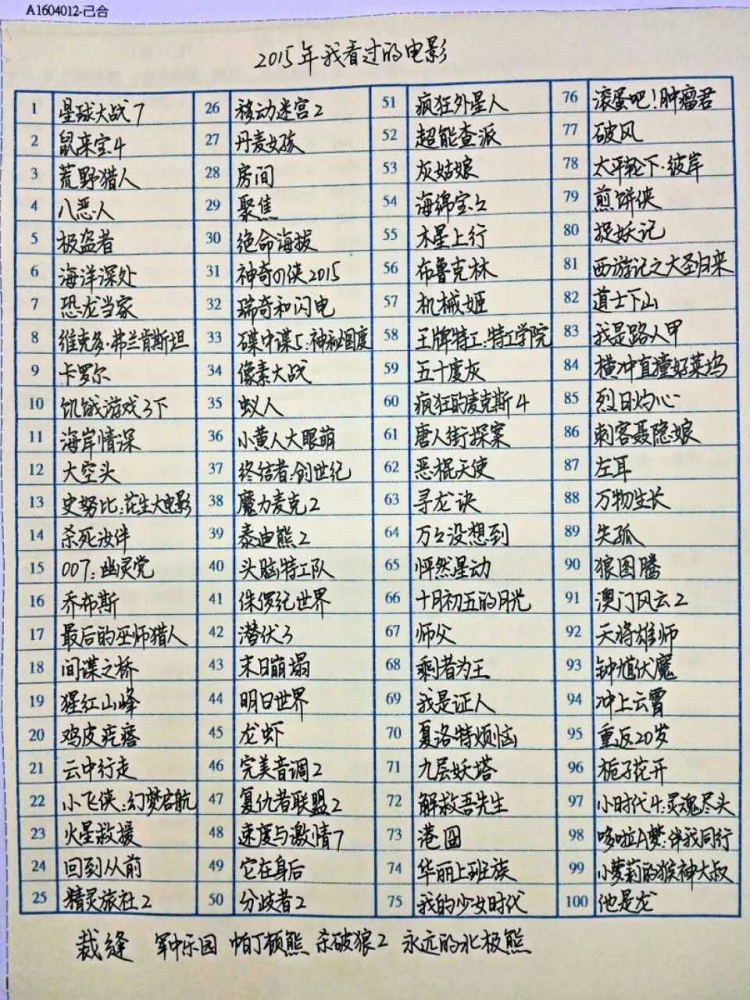 A1604012-己合
2015年我看过的电影
1 星球大战7 26 移动迷宫2 51 疯狂外星人 76 滚蛋吧!肿瘤君
2 鼠来宝4 27 丹麦女孩 52 超能查派 77 破风
3 荒野猎人 28 房间 53 灰姑娘 78 太平轮下·彼岸
4 八恶人 29 聚焦 54 海绵宝宝 79 煎饼侠
5 极盗者 30 绝命海拔 55 木星上行 80 捉妖记
6 海洋深处 31 神奇4侠2015 56 布鲁克林 81 西游记之大圣归来
7 恐龙当家 32 瑞奇和闪电 57 机械姬 82 道士下山
8 维克多·弗兰肯斯坦 33 碟中谍5:神秘国度 58 王牌特工:特工学院 83 我是路人甲
9 卡罗尔 34 像素大战 59 五十度灰 84 横冲直撞好莱坞
10 饥饿游戏3下 35 蚁人 60 疯狂的麦克斯4 85 烈日灼心
11 海岸情深 36 小黄人大眼萌 61 唐人街探案 86 刺客聂隐娘
12 大空头 37 终结者:创世纪 62 恶棍天使 87 左耳
13 史努比:花生大电影 38 魔力麦克2 63 寻龙诀 88 万物生长
14 杀死汝件 39 泰迪熊2 64 万万没想到 89 失孤
15 007:幽灵党 40 头脑特工队 65 怦然星动 90 狼图腾
16 乔布斯 41 侏罗纪世界 66 十月初五的月光 91 澳门风云2
17 最后的巫师猎人 42 潜伏3 67 师父 92 天将雄师
18 间谍之桥 43 末日崩塌 68 剩者为王 93 钟馗伏魔
19 猩红山峰 44 明日世界 69 我是证人 94 冲上云霄
20 鸡皮疙瘩 45 龙虾 70 夏洛特烦恼 95 重返20岁
21 云中行走 46 完美音调2 71 九层妖塔 96 栀子花开
22 小飞侠:幻梦启航 47 复仇者联盟2 72 解救吾先生 97 小时代4:灵魂尽头
23 火星救援 48 速度与激情7 73 港囧 98 哆啦A梦:伴我同行
24 回到从前 49 它在身后 74 华丽上班族 99 小萝莉的猴神大叔
25 精灵旅社2 50 分歧者2 75 我的少女时代 100 他是龙
裁缝 军中乐园 帕丁顿熊 杀破狼2 永远的北极熊